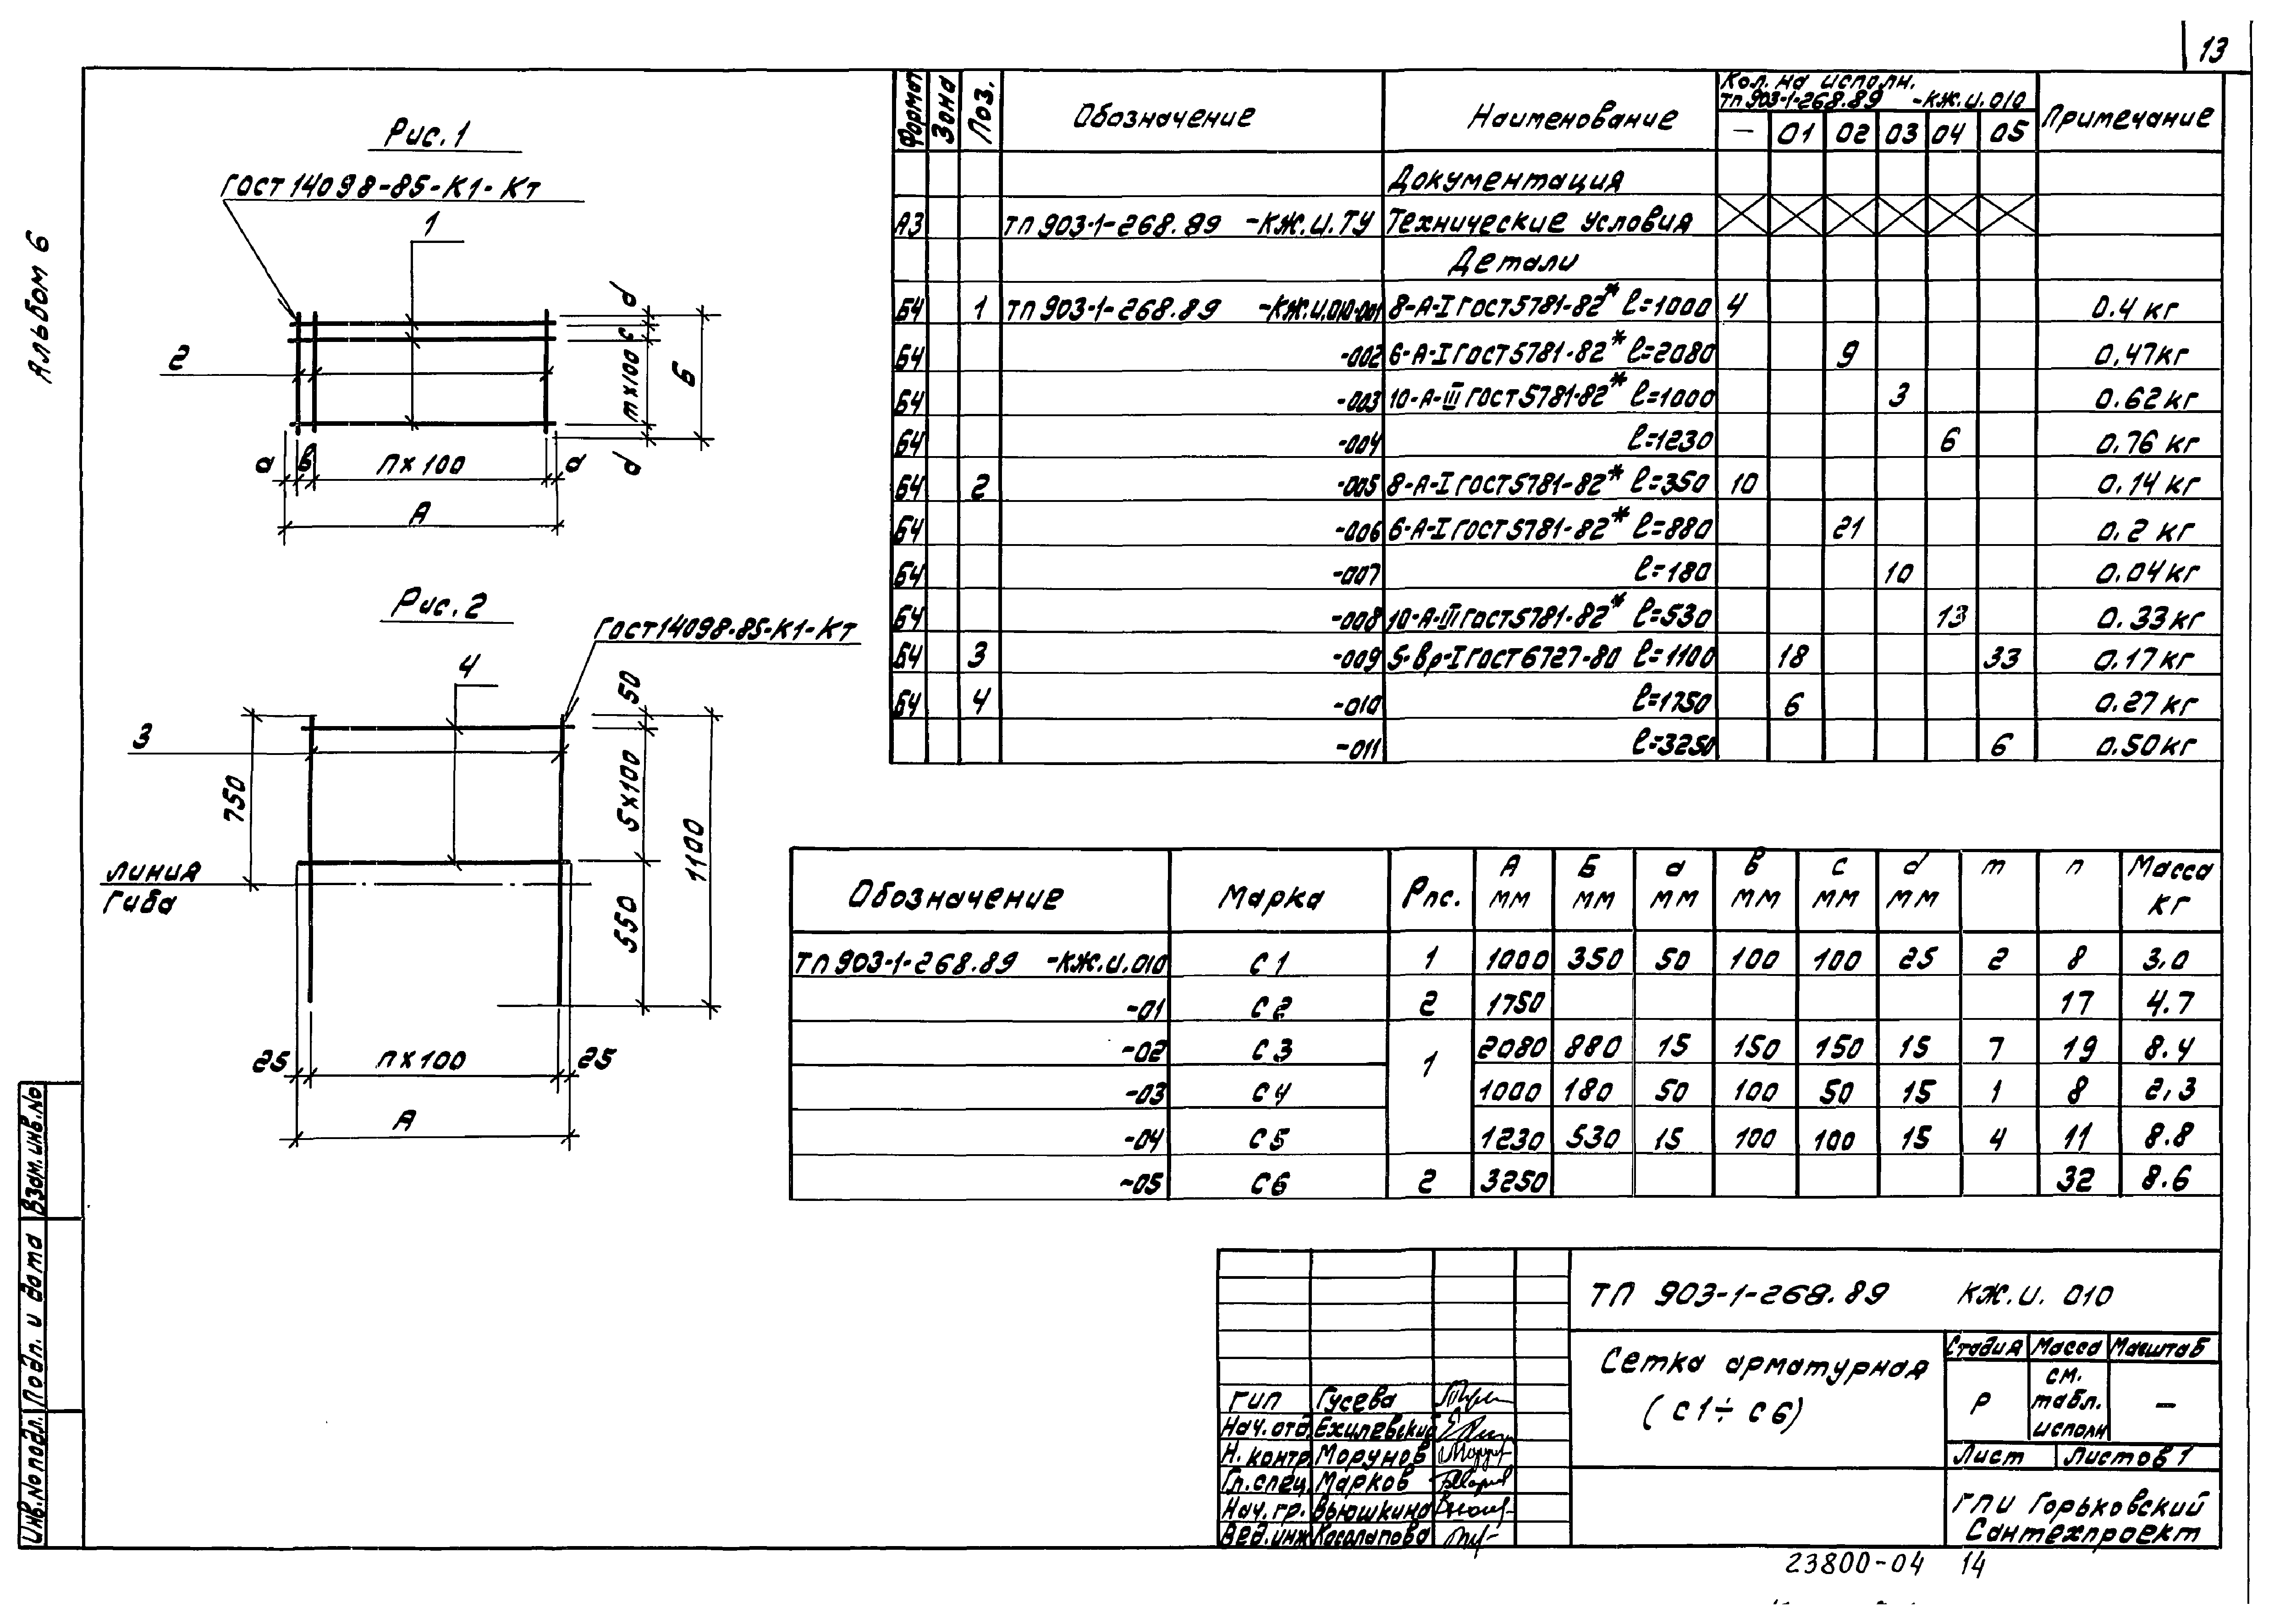 13
Альбом 6
Рис.1
ГОСТ 14098-85-К1-Кт
1
2
d
c
m×100
Б
d
а
в
n×100
а
А
Рис.2
ГОСТ 14098-85-К1-Кт
4
3
50
5×100
550
1100
750
линия
гиба
25
n×100
25
А
Формат Зона Поз. Обозначение Наименование Кол. на исполн. ТП 903-1-268.89 -КЖ.И.010 Примечание
— 01 02 03 04 05
Документация
А3 ТП 903-1-268.89 -КЖ.И.ТУ Технические условия
Детали
БЧ 1 ТП 903-1-268.89 -КЖ.И.010-001 8-А-I ГОСТ 5781-82* ℓ=1000 4 0.4 кг
БЧ -002 6-А-I ГОСТ 5781-82* ℓ=2080 9 0.47кг
БЧ -003 10-А-III ГОСТ 5781-82* ℓ=1000 3 0.62кг
БЧ -004 ℓ=1230 6 0.76 кг
БЧ 2 -005 8-А-I ГОСТ 5781-82* ℓ=350 10 0.14 кг
БЧ -006 6-А-I ГОСТ 5781-82* ℓ=880 21 0.2 кг
БЧ -007 ℓ=180 10 0.04кг
БЧ -008 10-А-III ГОСТ 5781-82* ℓ=530 13 0.33кг
БЧ 3 -009 5-Вр-I ГОСТ 6727-80 ℓ=1100 18 33 0.17кг
БЧ 4 -010 ℓ=1750 6 0.27кг
-011 ℓ=3250 6 0.50кг
Обозначение Марка Рис. А мм Б мм а мм в мм с мм d мм m n Масса кг
ТП 903-1-268.89 -КЖ.И.010 С1 1 1000 350 50 100 100 25 2 8 3,0
-01 С2 2 1750 17 4.7
-02 С3 1 2080 880 15 150 150 15 7 19 8.4
-03 С4 1000 180 50 100 50 15 1 8 2,3
-04 С5 1230 530 15 100 100 15 4 11 8.8
-05 С6 2 3250 32 8.6
ТП 903-1-268.89 КЖ.И. 010
Сетка арматурная
(С1÷С6)
Стадия Масса Масштаб
Р см. табл. исполн —
Лист Листов 1
ГПИ Горьковский
Сантехпроект
ГИП Гусева
Нач.отд. Ехилевский
Н.контр. Морунов
Гл.спец. Марков
Нач.гр. Вьюшкина
Вед.инж Косолапова
Взам.инв.No
Подп. и дата
Инв.No подл.
23800-04 14